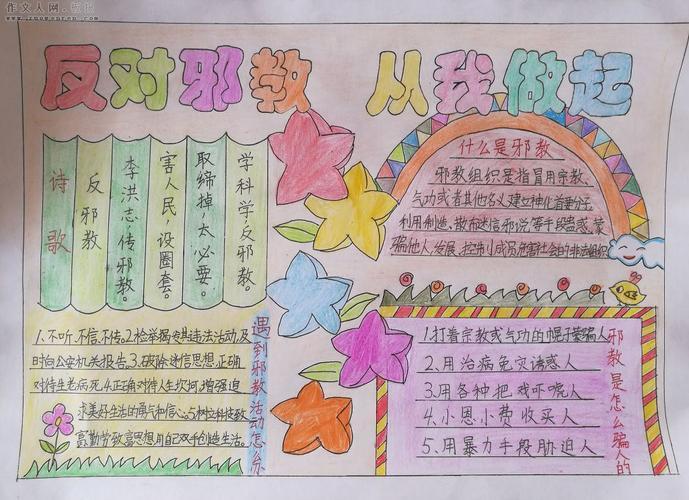 作文人网·板报
反对邪教 从我做起
诗歌
反邪教
李洪志,传邪教。
害人民,设圈套。
取缔掉,太必要。
学科学反邪教。
什么是邪教
邪教组织是指冒用宗教、
气功或者其他名义建立神化首要分子
利用制造、散布迷信邪说等手段蛊惑、蒙
骗他人,发展、控制成员危害社会的非法组织
1.不听、不信、不传。2.检举揭发其违法活动,及
时向公安机关报告。3.破除迷信思想,正确
对待生老病死。4.正确对待人生坎坷,增强追
求美好生活的勇气和信心。5.树立科技致
富勤劳致富思想用自己双手创造生活。
遇到邪教活动怎么办
1.打着宗教或气功的帽子蒙骗人
2、用治病免灾诱惑人
3、用各种把戏吓唬人
4、小恩小费收买人
5、用暴力手段胁迫人
邪教是怎么骗人的